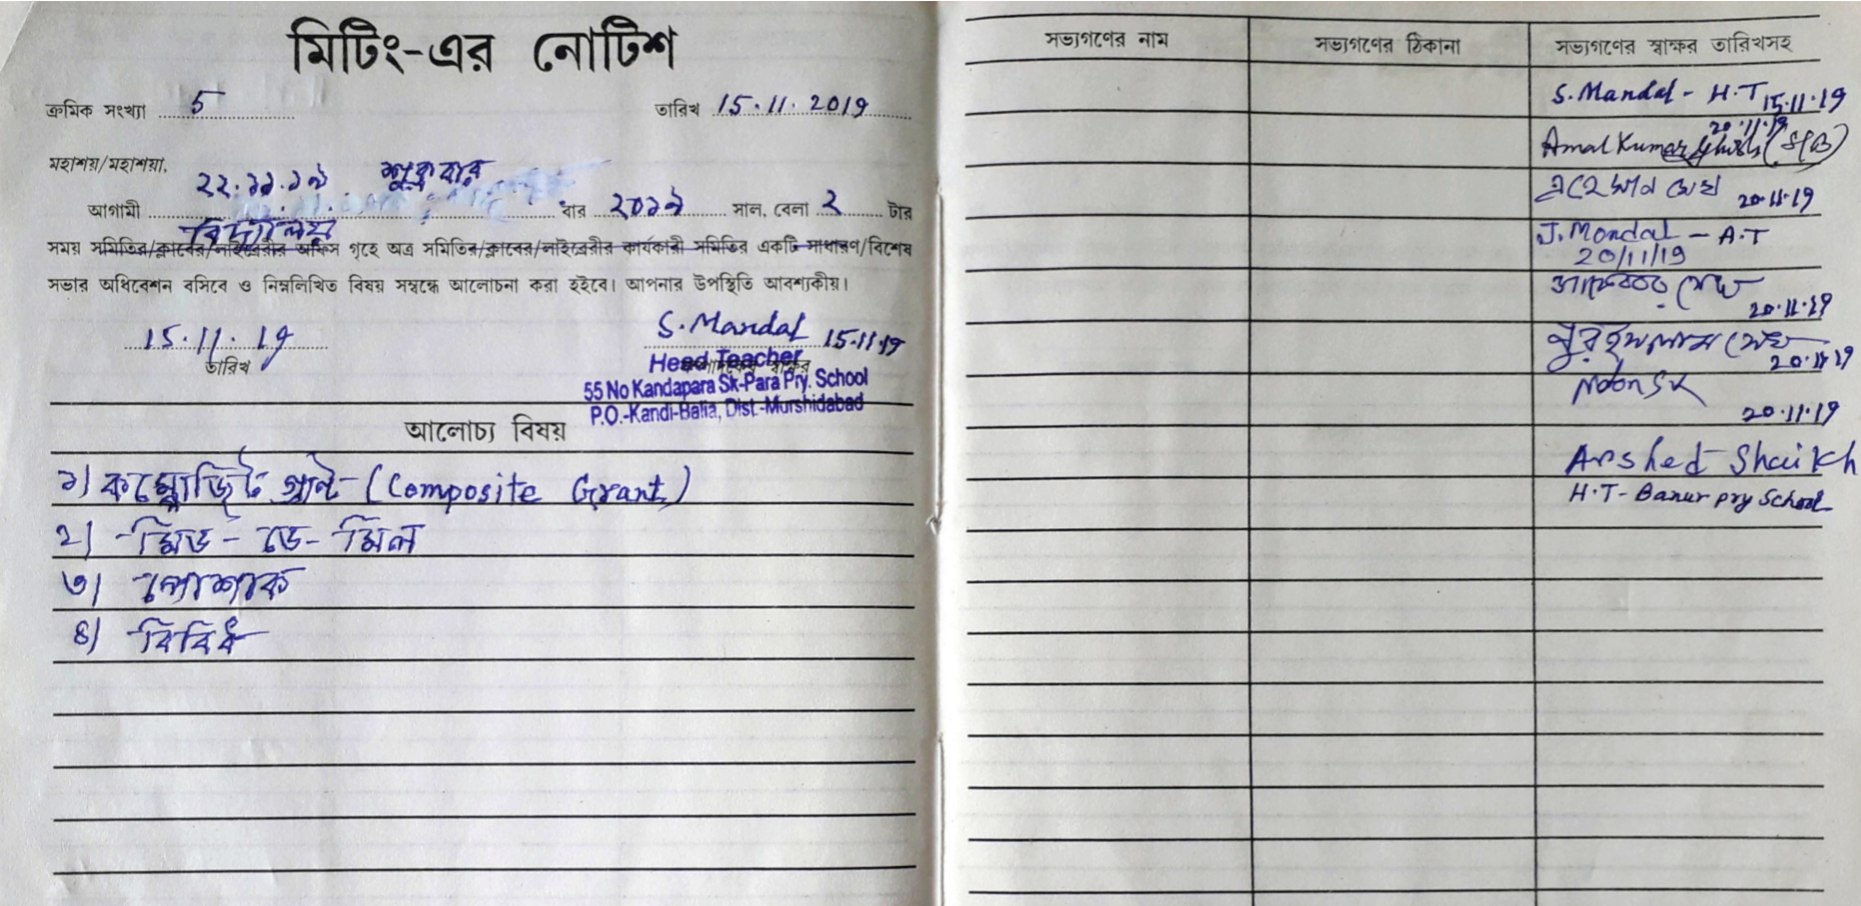 মিটিং-এর নোটিশ
ক্রমিক সংখ্যা 5 তারিখ 15.11.2019
মহাশয়/মহাশয়া,
আগামী ২২.১১.১৯ শুক্রবার বার ২০১৯ সাল, বেলা ২ টার
বিদ্যালয়
সময় সমিতির/ক্লাবের/লাইব্রেরীর অফিস গৃহে অত্র সমিতির/ক্লাবের/লাইব্রেরীর কার্যকারী সমিতির একটি সাধারণ/বিশেষ
সভার অধিবেশন বসিবে ও নিম্নলিখিত বিষয় সম্বন্ধে আলোচনা করা হইবে। আপনার উপস্থিতি আবশ্যকীয়।
15.11.19 S. Mandal 15.11.19
তারিখ
Head Teacher
55 No Kandapara Sk-Para Pry. School
P.O.-Kandi-Balia, Dist.-Murshidabad
আলোচ্য বিষয়
১) কম্পোজিট গ্রান্ট (Composite Grant)
২) মিড-ডে-মিল
৩) পোশাক
৪) বিবিধ
সভ্যগণের নাম সভ্যগণের ঠিকানা সভ্যগণের স্বাক্ষর তারিখসহ
S. Mandal - H.T 15.11.19
20.11.19
Amal Kumar Ghosh
20.11.19
J. Mondal - A.T
20/11/19
20.11.19
নুরইসলাম সেখ
20.11.19
20.11.19
Arshed Shaikh
H.T - Banur pry School